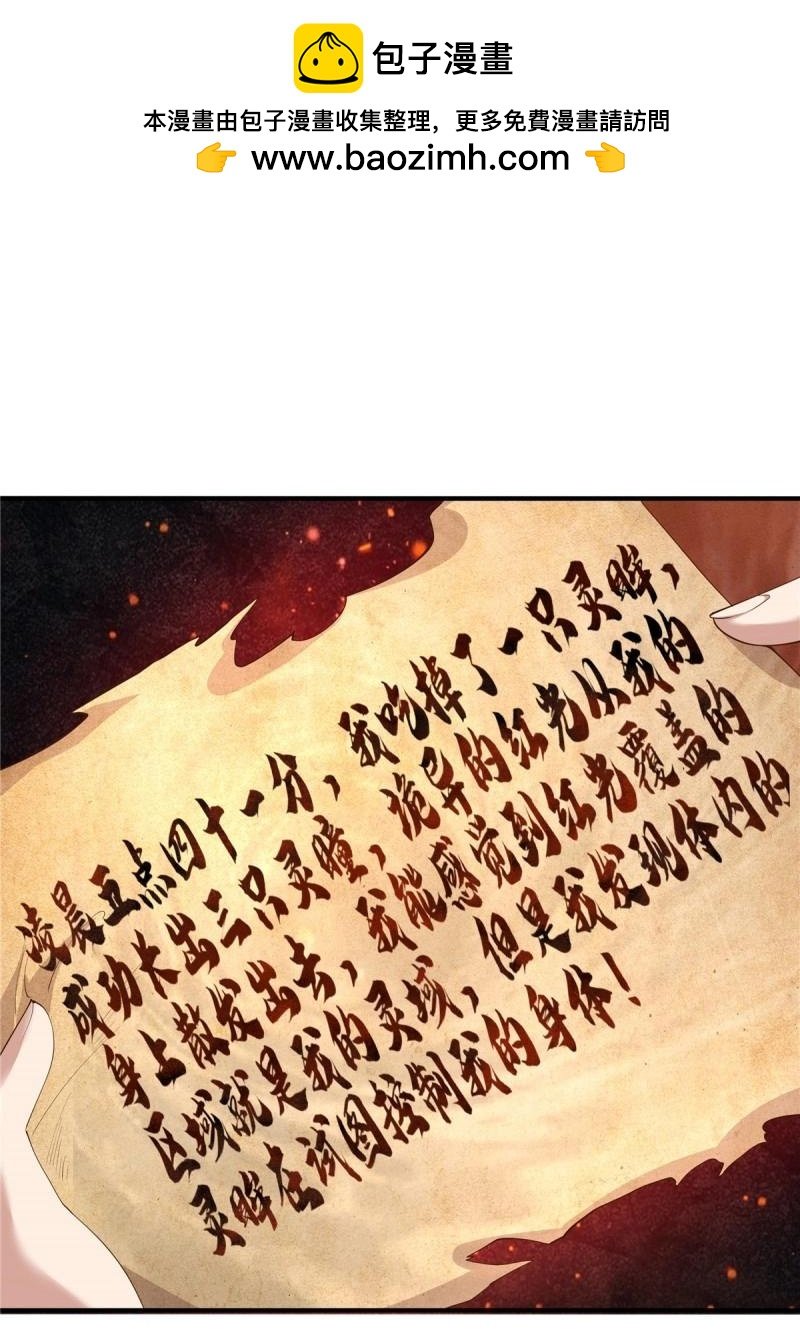 包子漫畫
本漫畫由包子漫畫收集整理，更多免費漫畫請訪問
👉 www.baozimh.com 👈
凌晨五点四十一分，我吃掉了一只灵眸，
成功长出三只灵瞳，诡异的红光从我的
身上散发出去，我能感觉到红光覆盖的
区域就是我的灵域，但是我发现体内的
灵眸在试图控制我的身体！